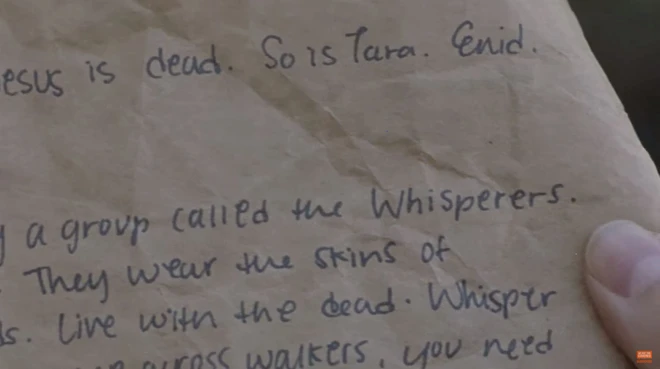 esus is dead. So is Tara. Enid.
a group called the Whisperers.
They wear the skins of
s. Live with the dead. Whisper
across walkers, you need